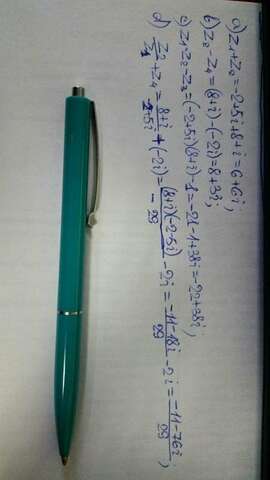 a) Z₁+Z₂=-2+5i+8+i=6+6i;
b) Z₂-Z₄=(8+i)-(-2i)=8+3i;
c) Z₁·Z₂-Z₃=(-2+5i)(8+i)-1=-21-1+38i=-22+38i;
d) Z₂/Z₁+Z₄=(8+i)/(-2+5i)+(-2i)=(8+i)(-2-5i)/29-2i=(-11-18i)/29-2i=(-11-76i)/29;